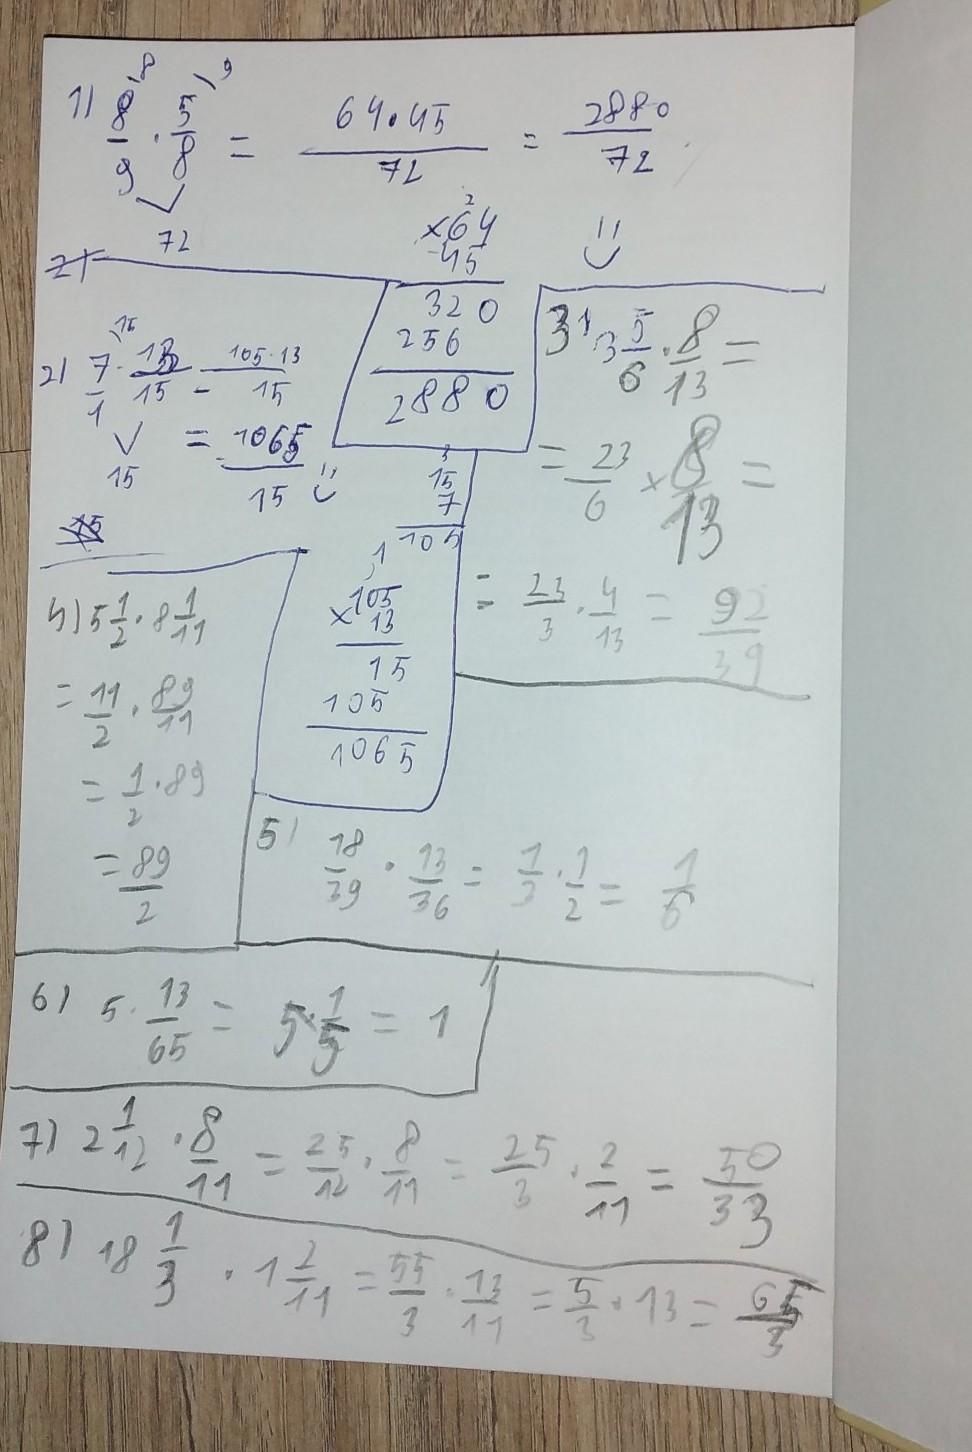 1) 8/9 · 5/8 = 64·45/72 = 2880/72
8 9
72
2)
2
×64
45
320
256
2880
2) 7/1 · 13/15 = 105·13/15
15
15
= 1065/15
3
15
7
105
1
105
×13
15
105
1065
3) 3 5/6 · 8/13 =
= 23/6 × 8/13 =
= 23/3 · 4/13 = 92/39
4) 5 1/2 · 8 1/11
= 11/2 · 89/11
= 1/2 · 89
= 89/2
5) 18/39 · 13/36 = 1/3 · 1/2 = 1/6
6) 5 · 13/65 = 5 · 1/5 = 1
7) 2 1/12 · 8/11 = 25/12 · 8/11 = 25/3 · 2/11 = 50/33
8) 18 1/3 · 1 2/11 = 55/3 · 13/11 = 5/3 · 13 = 65/3